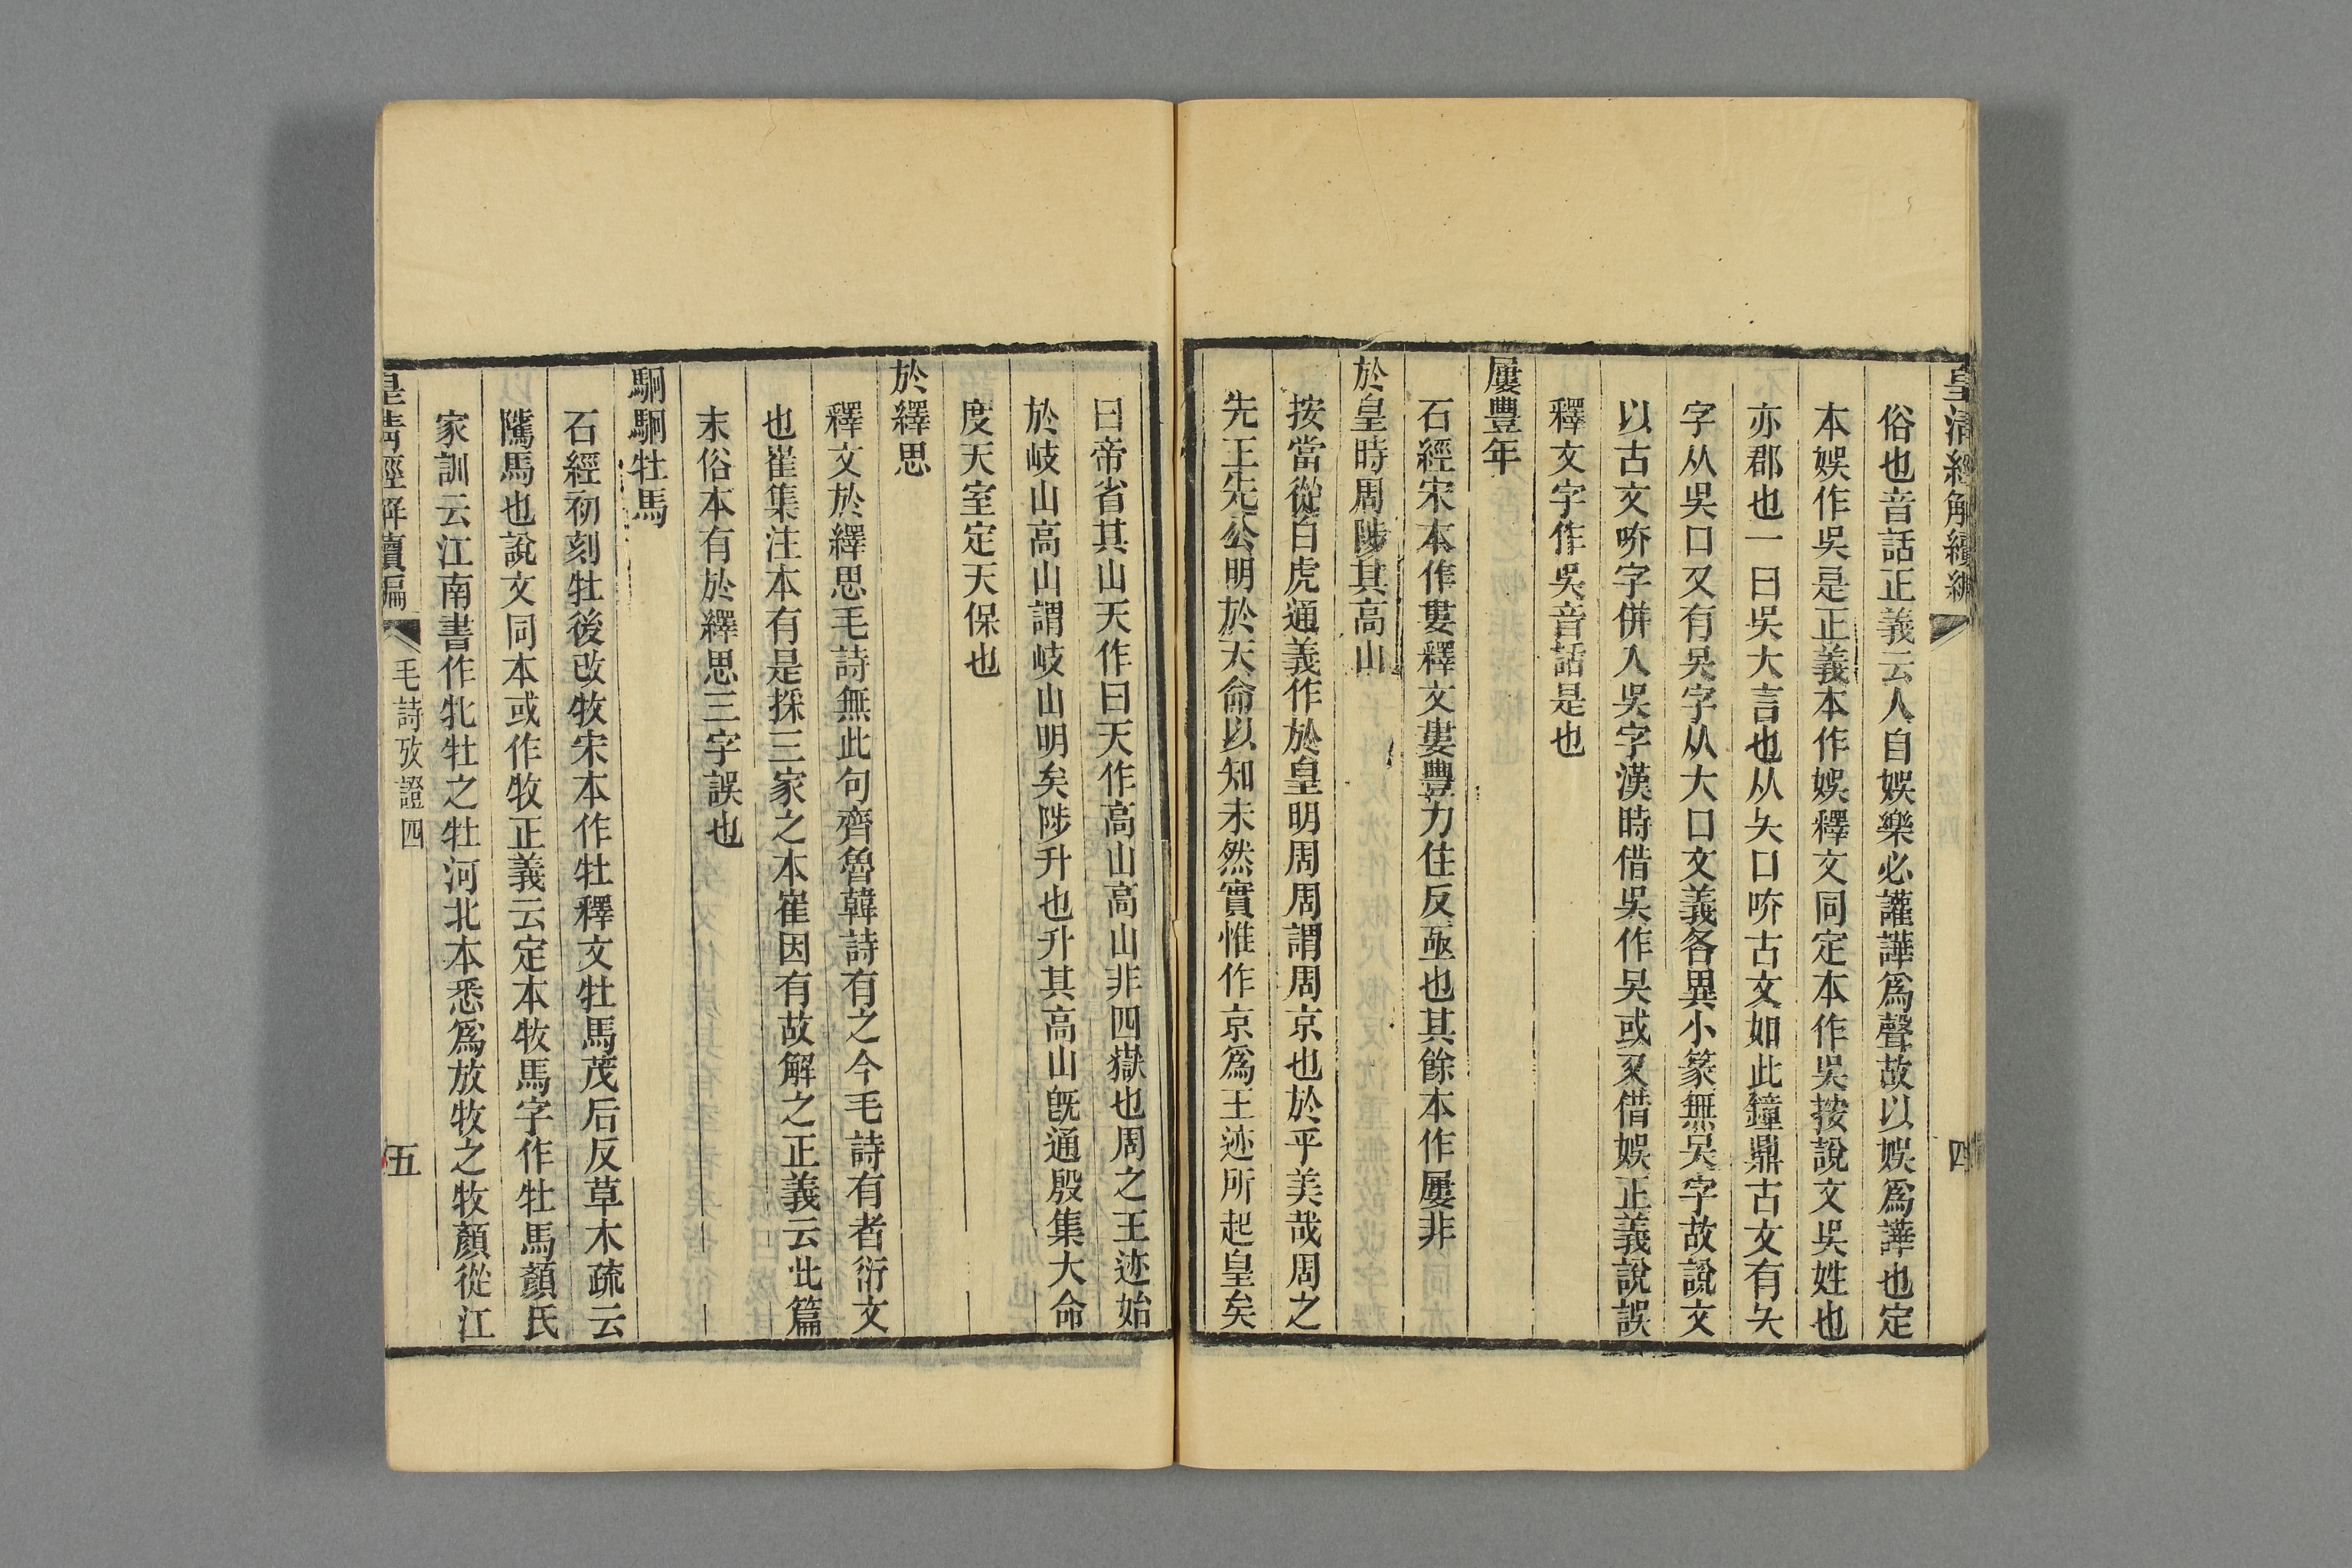 皇清經解續編
四
俗也音話正義云人自娛樂必讙譁爲聲故以娛爲譁也定
本娛作吳是正義本作娛釋文同定本作吳按說文吳姓也
亦郡也一曰吳大言也从夨口㕦古文如此鐘鼎古文有夨
字从吳口又有吳字从大口文義各異小篆無吳字故說文
以古文㕦字併入吳字漢時借吳作吳或又借娛正義說誤
釋文字作吳音話是也
屢豐年
石經宋本作婁釋文婁豐力住反亟也其餘本作屢非
於皇時周陟其高山
按當從白虎通義作於皇明周周謂周京也於乎美哉周之
先王先公明於天命以知未然實惟作京爲王迹所起皇矣
曰帝省其山天作曰天作高山高山非四嶽也周之王迹始
於岐山高山謂岐山明矣陟升也升其高山旣通殷集大命
度天室定天保也
於繹思
釋文於繹思毛詩無此句齊魯韓詩有之今毛詩有者衍文
也崔集注本有是採三家之本崔因有故解之正義云此篇
末俗本有於繹思三字誤也
駉駉牡馬
石經初刻牡後改牧宋本作牡釋文牡馬茂后反草木疏云
騭馬也說文同本或作牧正義云定本牧馬字作牡馬顏氏
家訓云江南書作牝牡之牡河北本悉爲放牧之牧顏從江
皇清經解續編
毛詩攷證四
五